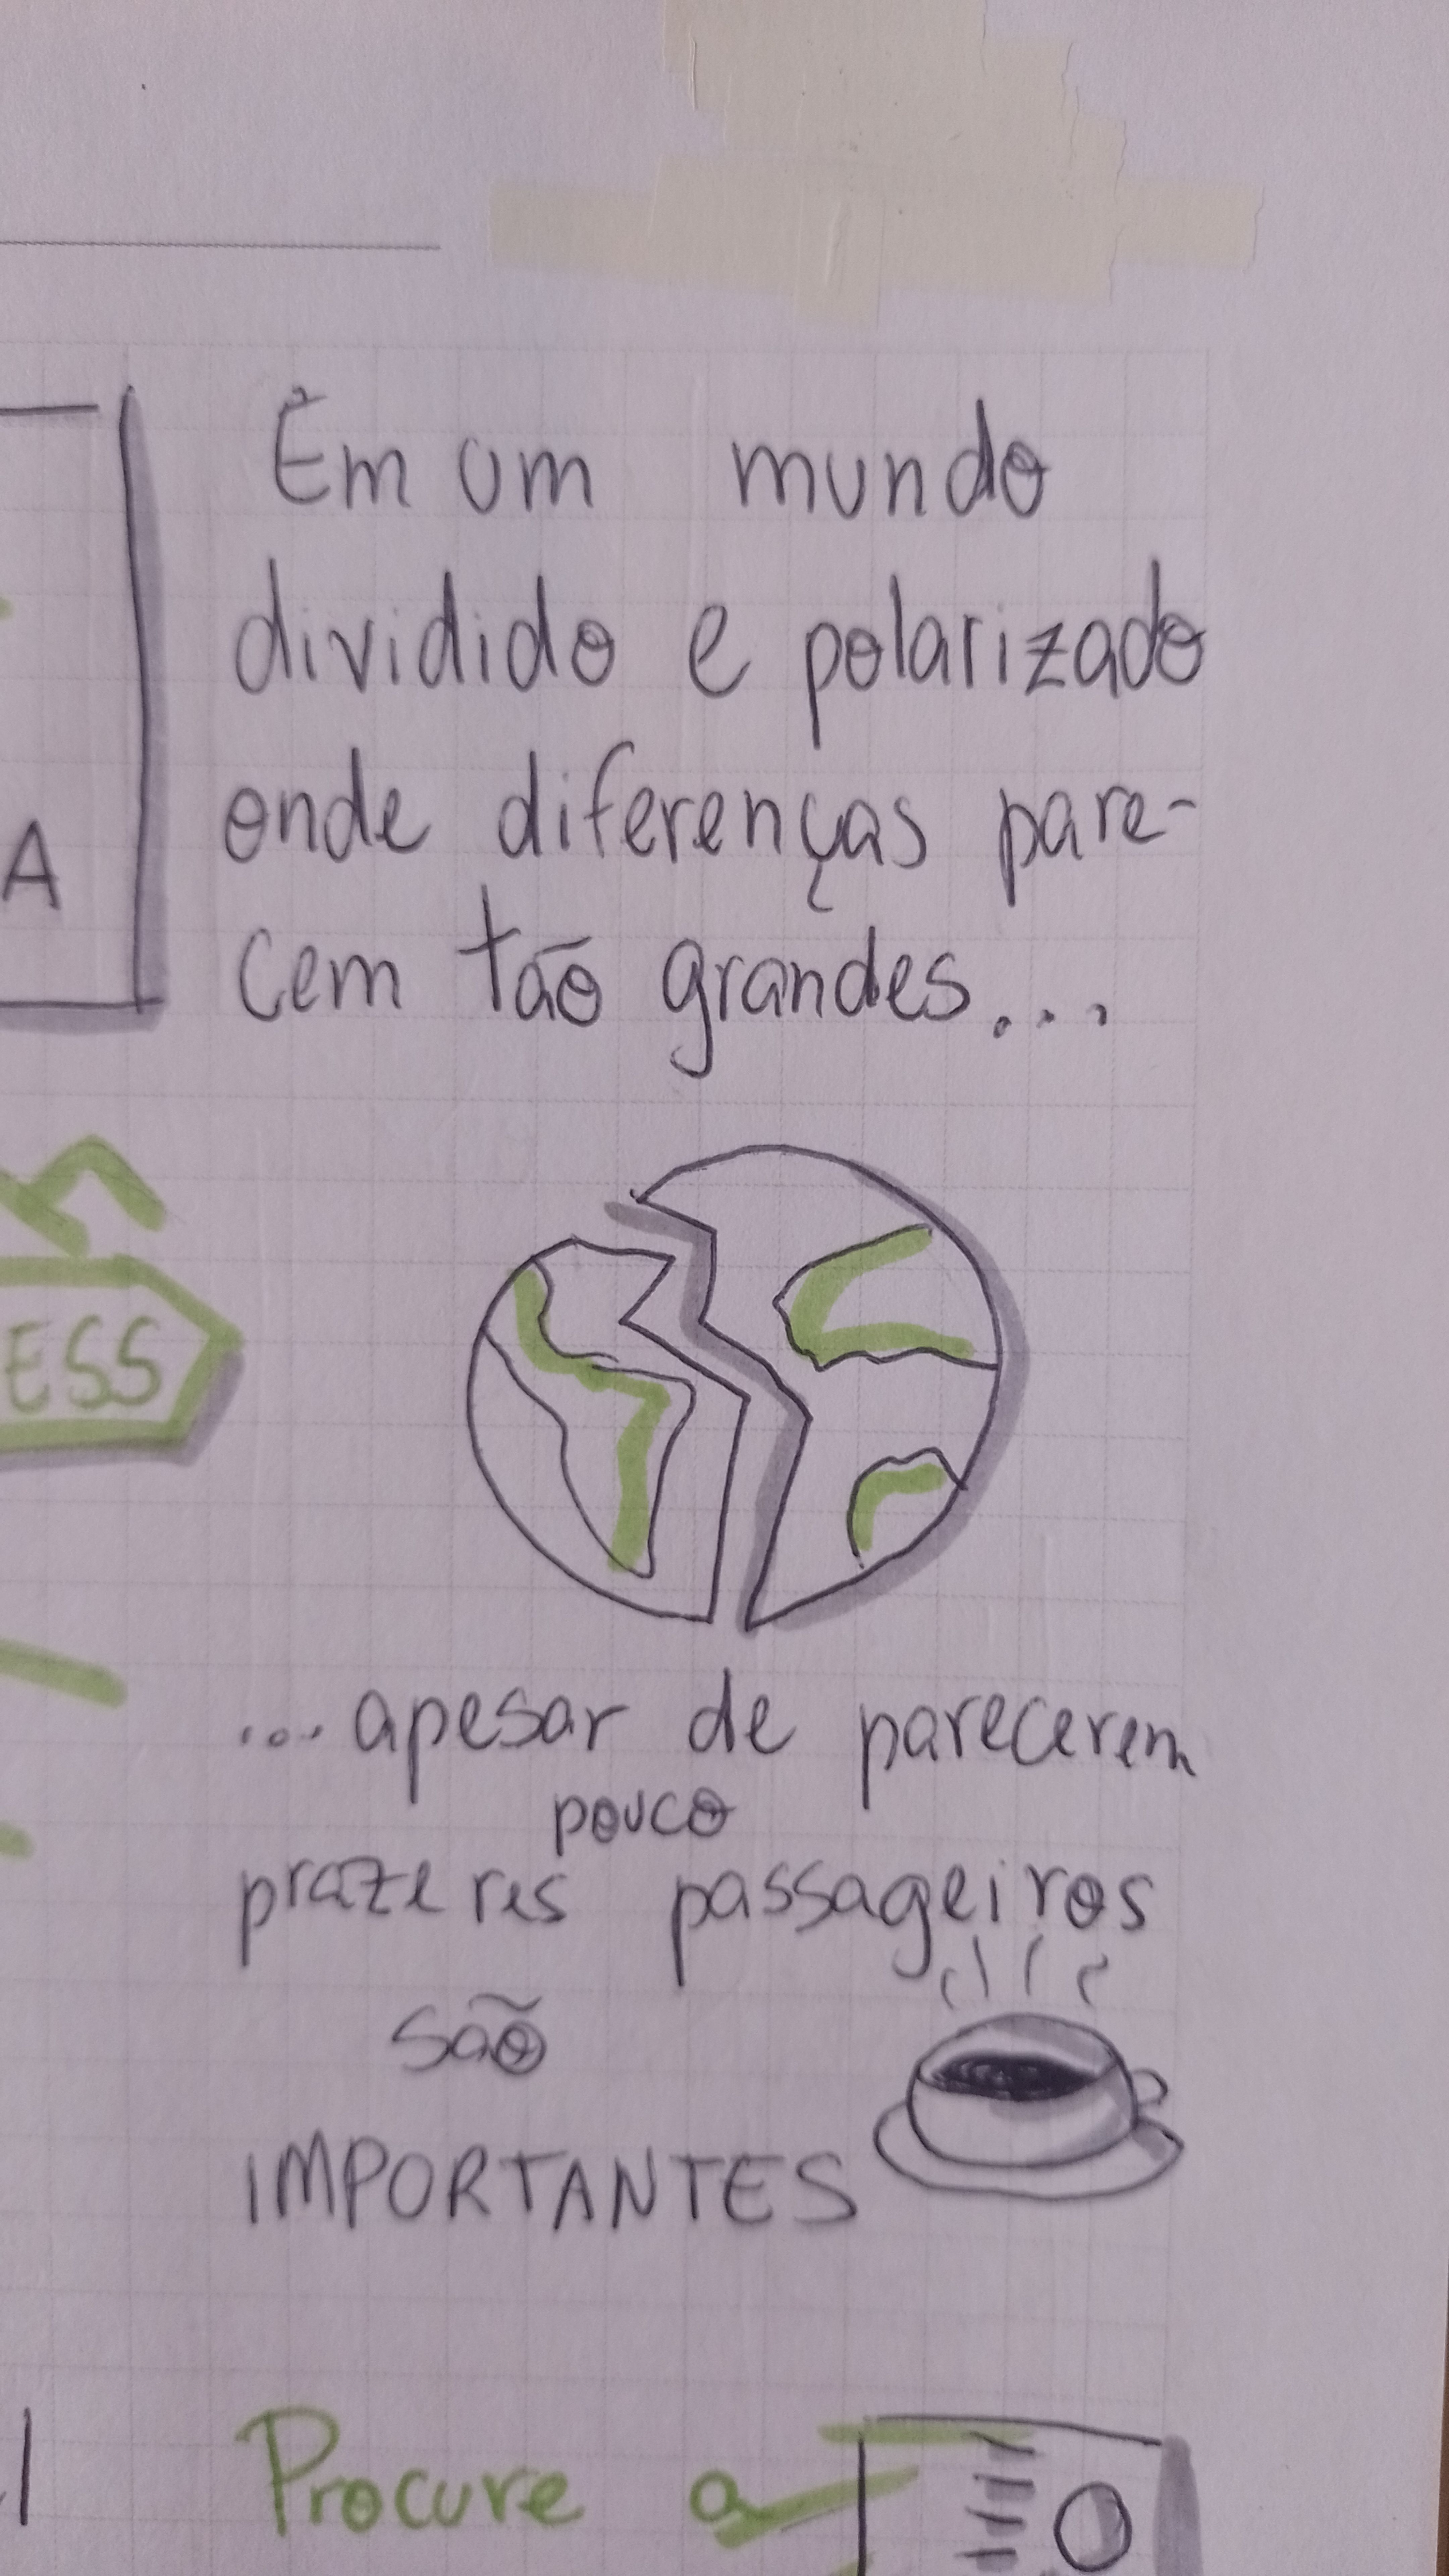 Em um mundo
dividido e polarizado
onde diferenças pare-
cem tão grandes...
A
ESS
...apesar de parecerem
pouco
prazeres passageiros
são
IMPORTANTES
Procure a